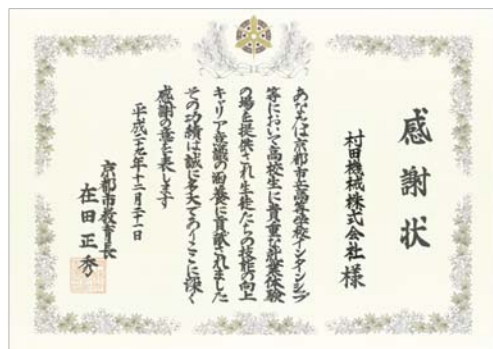 感謝状
村田機械株式会社様
あなたは京都市立高等学校インターンシップ
等において高校生に貴重な就業体験
の場を提供され生徒たちの技能の向上
キャリア意識の涵養に貢献されました
その功績は誠に多大でありここに深く
感謝の意を表します
平成二十九年十二月二十一日
京都市教育長
在田正秀